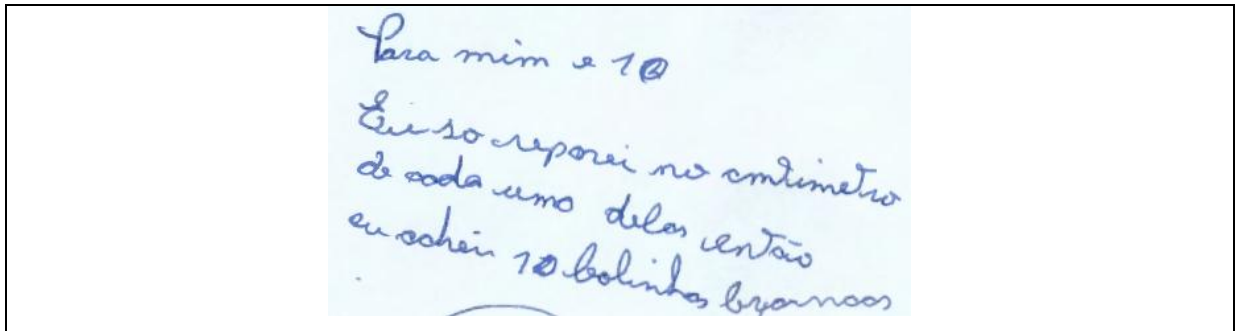 Para mim e 10
Eu so reparei no cmtimetro
de cada uma delas então
eu achei 10 bolinhas brancas